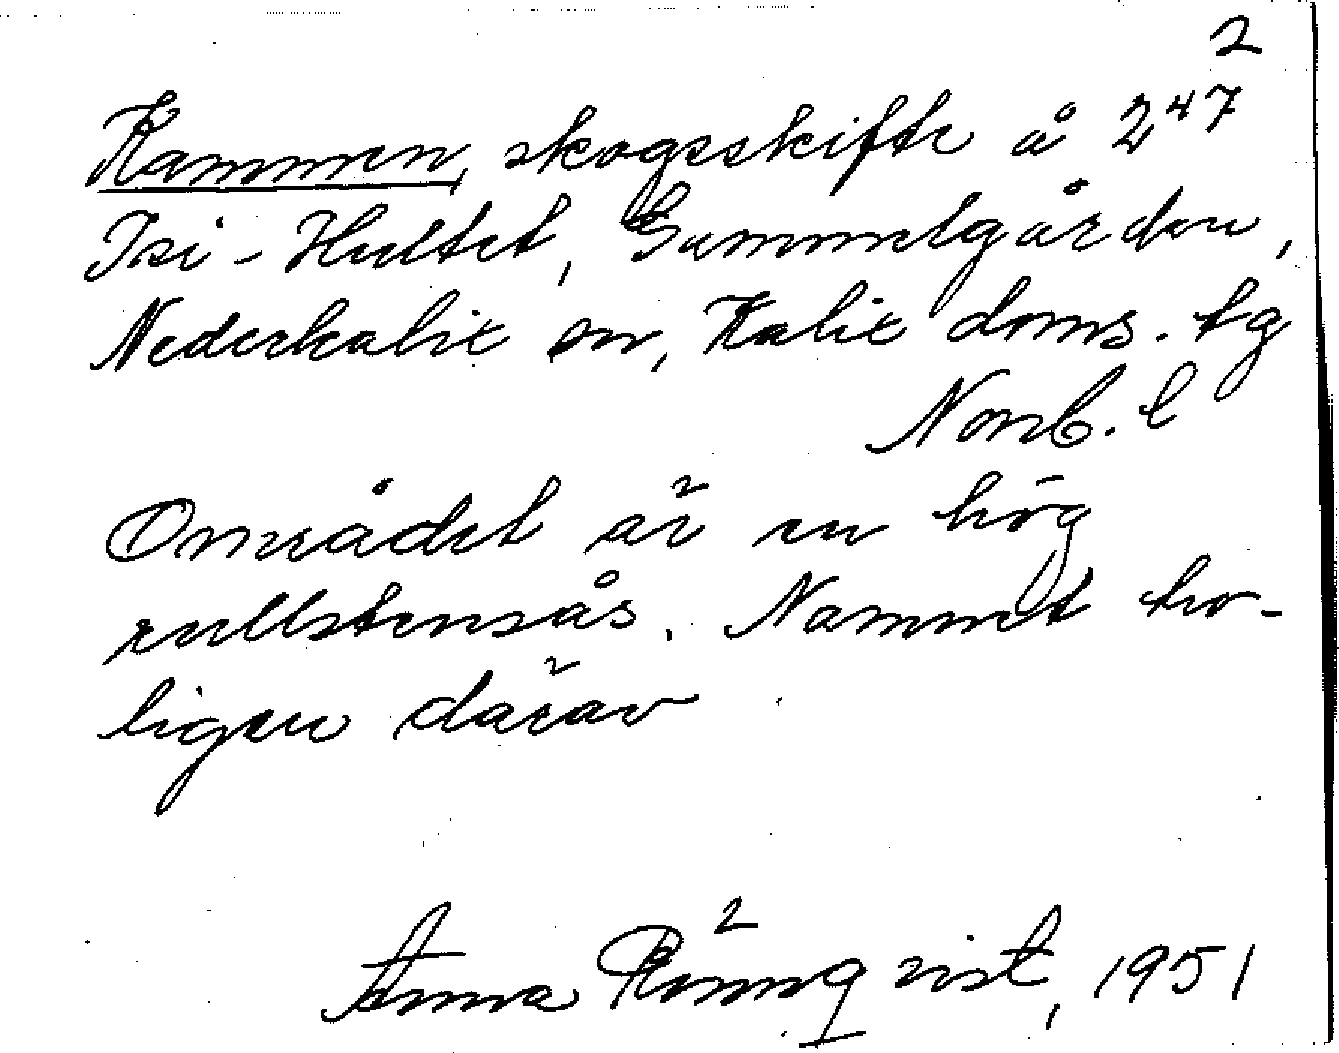 2
Kammen, skogsskifte å 2⁴⁷
Isi-Hultet, Gammelgården,
Nederkalix sn, Kalix doms. tg
Norrb. l
Området är en hög
rullstensås. Namnet tro-
ligen därav
Anna Rönnqvist, 1951